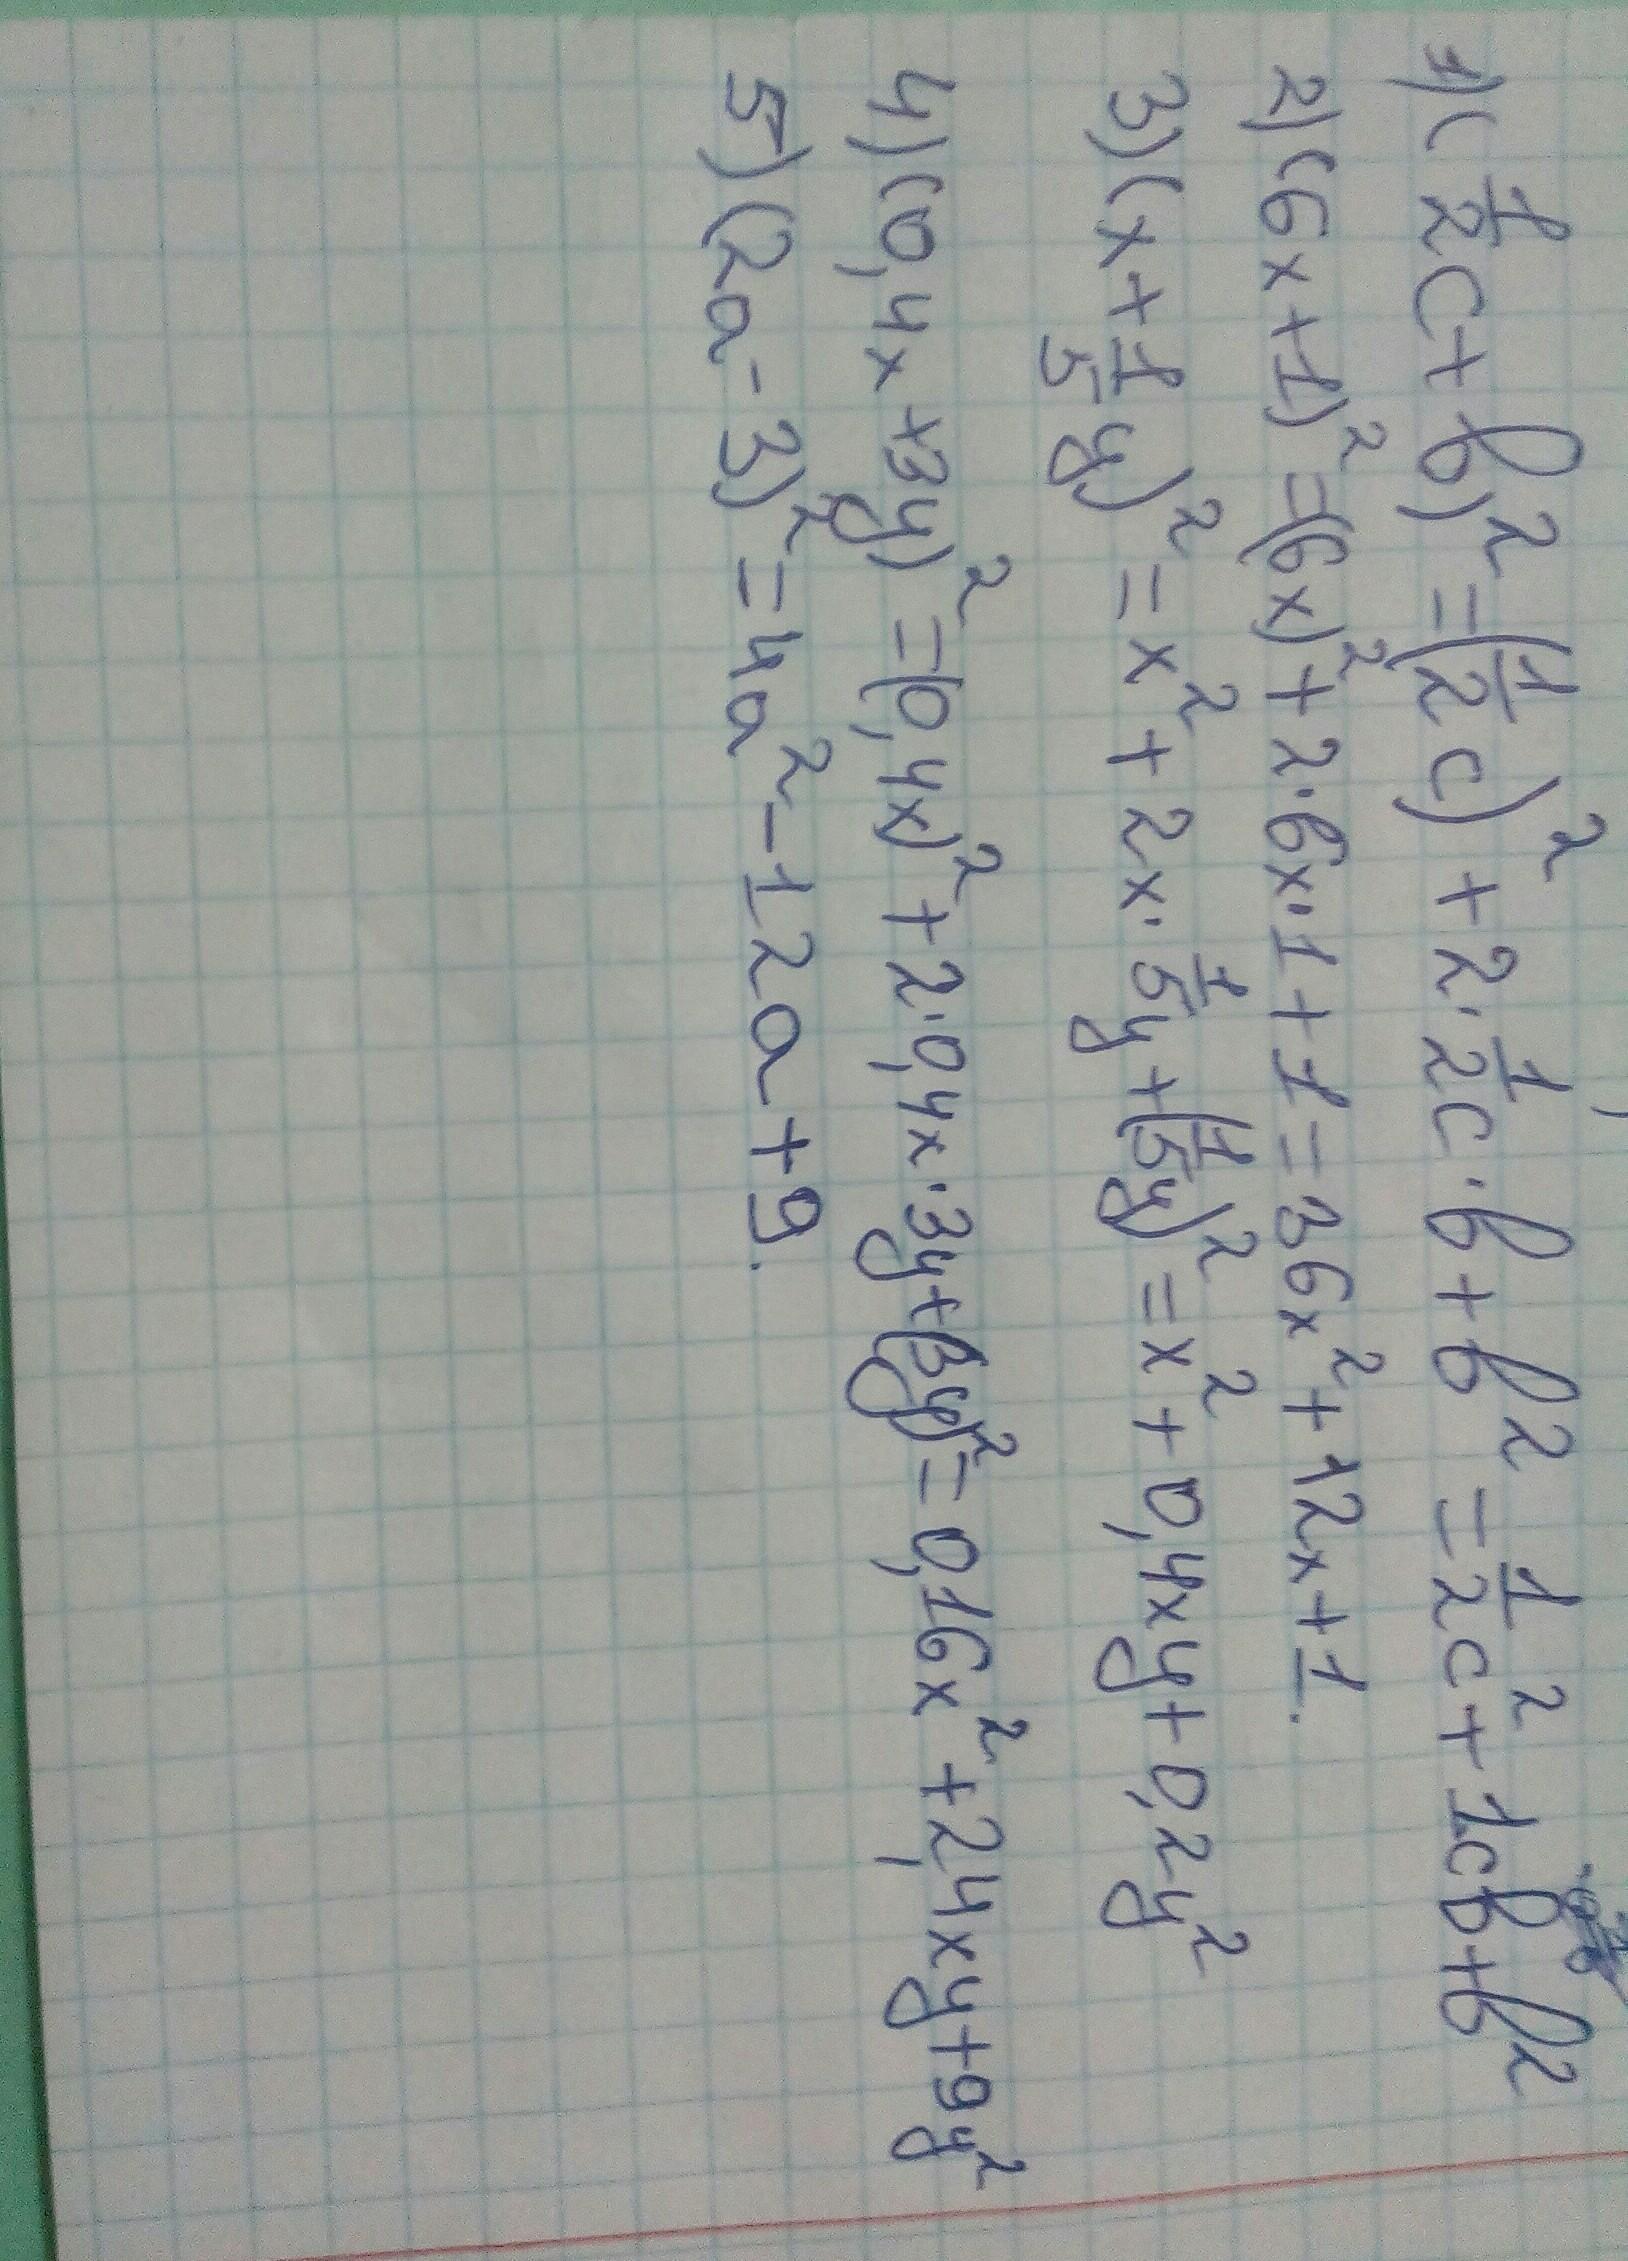 1) (1/2 c + b)² = (1/2 c)² + 2 · 1/2 c · b + b² = 1/2 c² + 1cb + b²
2) (6x + 1)² = (6x)² + 2 · 6x · 1 + 1 = 36x² + 12x + 1.
3) (x + 1/5 y)² = x² + 2x · 1/5 y + (1/5 y)² = x² + 0,4xy + 0,2y²
4) (0,4x + 3y)² = (0,4x)² + 2 · 0,4x · 3y + (3y)² = 0,16x² + 2,4xy + 9y²
5) (2a - 3)² = 4a² - 12a + 9.